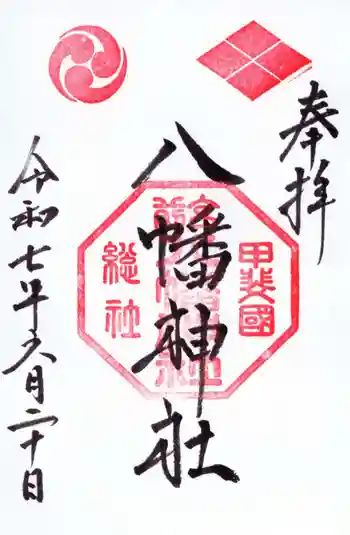 奉拝
甲斐國
八幡神社
総社
令和七年六月二十日